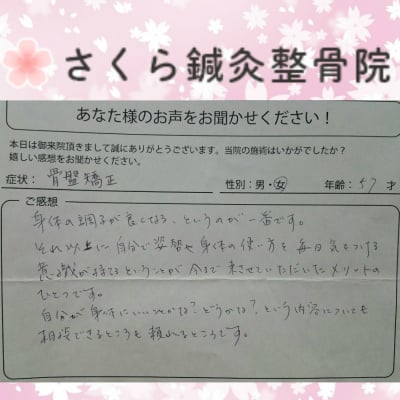 さくら鍼灸整骨院
あなた様のお声をお聞かせください！
本日は御来院頂きまして誠にありがとうございます。当院の施術はいかがでしたか？
嬉しい感想をお聞かせください。
症状: 骨盤矯正 性別: 男・女 年齢: 57 才
ご感想
身体の調子が良くなる、というのが一番です。
それ以上に自分で姿勢や身体の使い方を毎日気をつける
意識が持てるということが今まで来させていただいたメリットの
ひとつです。
自分が身体にいいことかな？どうかな？という内容についても
相談できるところも頼れるところです。